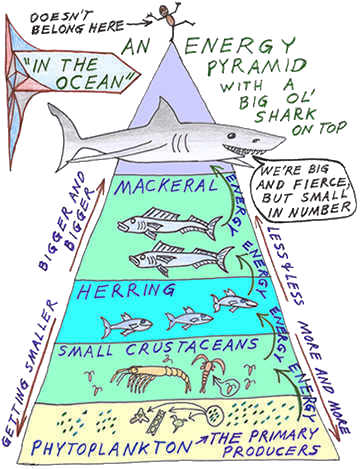 DOESN'T
BELONG HERE
"IN THE
OCEAN"
AN ENERGY
PYRAMID
WITH A
BIG OL'
SHARK
ON TOP
WE'RE BIG
AND FIERCE,
BUT SMALL
IN NUMBER
BIGGER AND
BIGGER
MACKERAL
ENERGY
LESS & LESS
ENERGY
HERRING
GETTING SMALLER
SMALL CRUSTACEANS
ENERGY
MORE AND MORE
ENERGY
PHYTOPLANKTON
THE PRIMARY
PRODUCERS